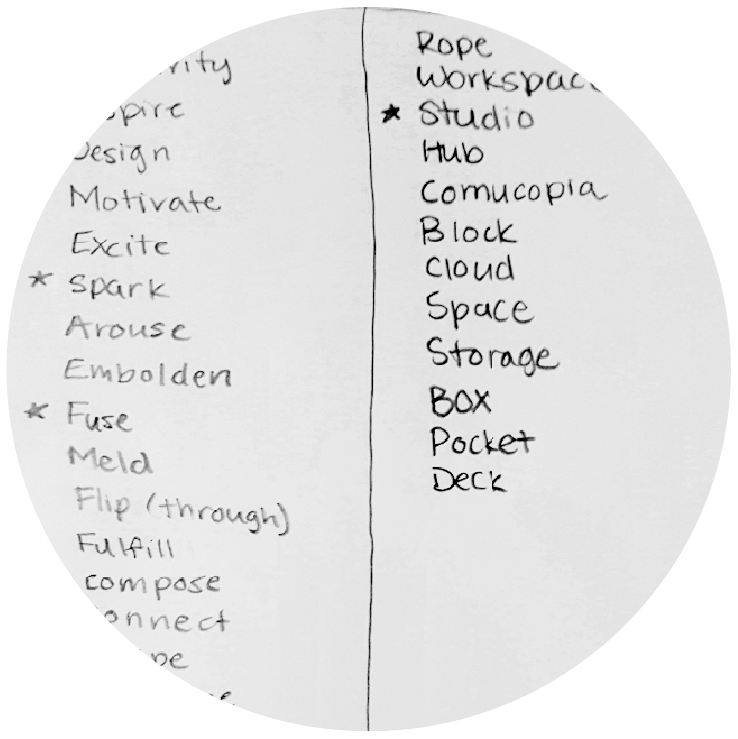 Design
Motivate
Excite
* Spark
Arouse
Embolden
* Fuse
Meld
Flip (through)
Fulfill
compose
onnect
Rope
Workspac
★ Studio
Hub
Cornucopia
Block
Cloud
Space
Storage
Box
Pocket
Deck